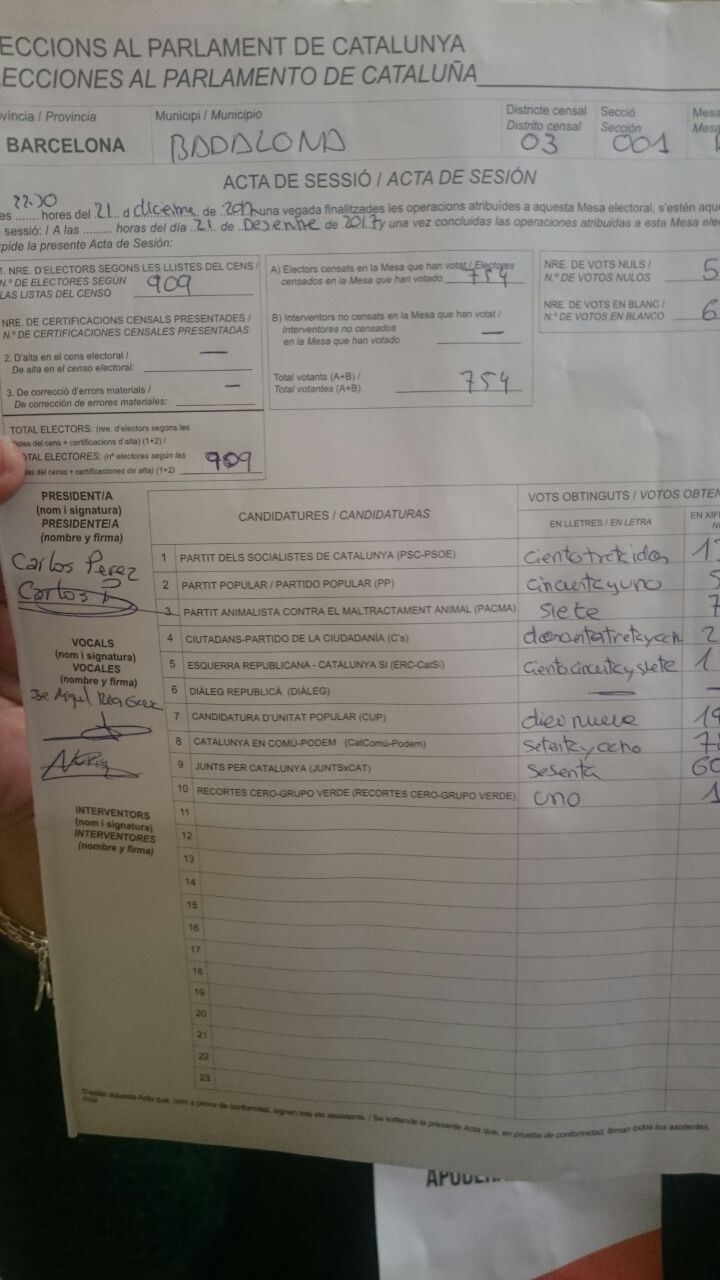 ECCIONS AL PARLAMENT DE CATALUNYA
ECCIONES AL PARLAMENTO DE CATALUÑA
vincia / Provincia
BARCELONA
Municipi / Municipio
BADALONA
Districte censal
Distrito censal
03
Secció
Sección
001
Mesa
Mesa
ACTA DE SESSIÓ / ACTA DE SESIÓN
22:30
es ....... hores del 21 d diciembre de 2017 una vegada finalitzades les operacions atribuïdes a aquesta Mesa electoral, s'estén aqu
sessió: / A las ........ horas del día 21 de Desembre de 2017 y una vez concluidas las operaciones atribuidas a esta Mesa elec
pide la presente Acta de Sesión:
1. NRE. D'ELECTORS SEGONS LES LLISTES DEL CENS /
N.º DE ELECTORES SEGÚN
LAS LISTAS DEL CENSO
909
NRE. DE CERTIFICACIONS CENSALS PRESENTADES /
N.º DE CERTIFICACIONES CENSALES PRESENTADAS
2. D'alta en el cens electoral /
De alta en el censo electoral:
—
3. De correcció d'errors materials /
De corrección de errores materiales:
—
TOTAL ELECTORS: (nre. d'electors segons les
listes del cens + certificacions d'alta) (1+2) /
TOTAL ELECTORES: (nº electores según las
las del censo + certificaciones de alta) (1+2)
909
A) Electors censats en la Mesa que han votat / Electores
censados en la Mesa que han votado
754
B) Interventors no censats en la Mesa que han votat /
Interventores no censados
en la Mesa que han votado
—
Total votants (A+B) /
Total votantes (A+B)
754
NRE. DE VOTS NULS /
N.º DE VOTOS NULOS
5
NRE. DE VOTS EN BLANC /
N.º DE VOTOS EN BLANCO
6
PRESIDENT/A
(nom i signatura)
PRESIDENTE/A
(nombre y firma)
Carlos Perez
Carlos P
VOCALS
(nom i signatura)
VOCALES
(nombre y firma)
INTERVENTORS
(nom i signatura)
INTERVENTORES
(nombre y firma)
CANDIDATURES / CANDIDATURAS
VOTS OBTINGUTS / VOTOS OBTEN
EN LLETRES / EN LETRA
EN XIF
1 PARTIT DELS SOCIALISTES DE CATALUNYA (PSC-PSOE) ciento treki dos 1
2 PARTIT POPULAR / PARTIDO POPULAR (PP) cincuenta y uno 5
3 PARTIT ANIMALISTA CONTRA EL MALTRACTAMENT ANIMAL (PACMA) siete 7
4 CIUTADANS-PARTIDO DE LA CIUDADANÍA (C's) 2
5 ESQUERRA REPUBLICANA - CATALUNYA SI (ERC-CatSí) ciento cincuenta y siete 1
6 DIÀLEG REPUBLICÀ (DIÀLEG) — —
7 CANDIDATURA D'UNITAT POPULAR (CUP) diecinueve 19
8 CATALUNYA EN COMÚ-PODEM (CatComú-Podem) setenta y ocho 7
9 JUNTS PER CATALUNYA (JUNTSxCAT) sesenta 60
10 RECORTES CERO-GRUPO VERDE (RECORTES CERO-GRUPO VERDE) uno 1
11
12
13
14
15
16
17
18
19
20
21
22
23
S'estén aquesta Acta que, com a prova de conformitat, signen tots els assistents. / Se extiende la presente Acta que, en prueba de conformidad, firman todos los asistentes.